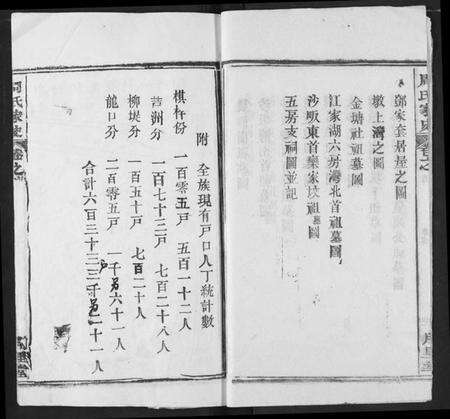 周氏家史
鄧家套居屋之圖
墩上灣之圖
金塘社祖墓圖
江家湖六房灣北首祖墓圖
沙畈東首欒家坟祖墓圖
五房支祠圖並記
附 全族現有戶口人丁統計數
棋杵份 一百零五戶 五百一十二人
芦洲分 一百七十三戶 七百二十八人
柳堤分 一百五十戶 七百二十人
龍口分 二百零五戶 一千 六十一人
合計六百三十三戶三千 二十一人
周氏家史 卷之